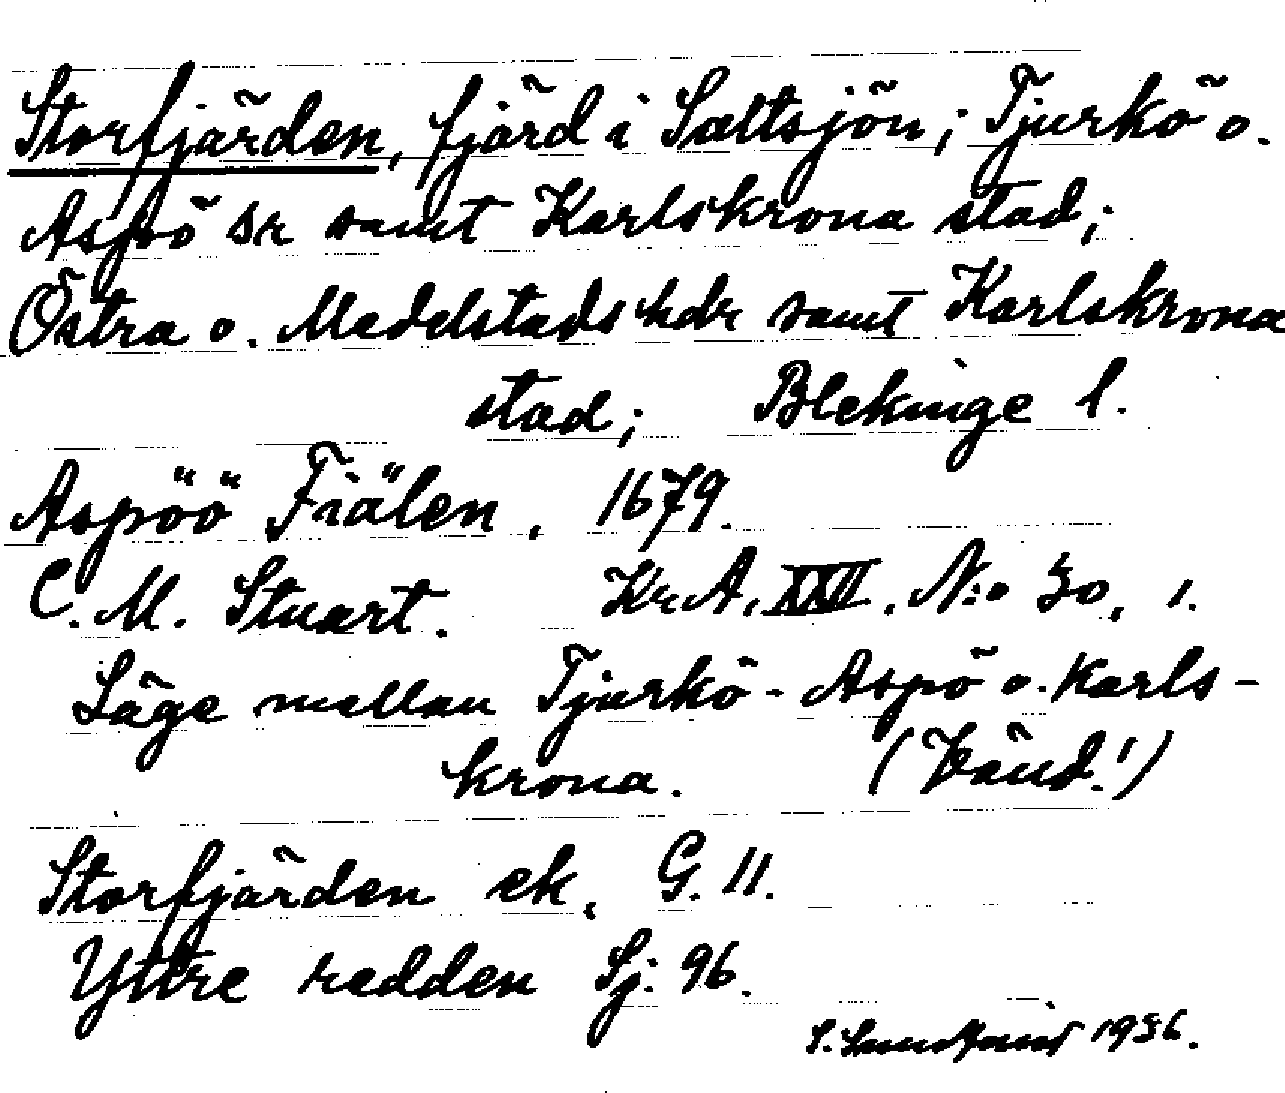 Storfjärden, fjärd i Saltsjön; Tjurkö o.
Aspö sr samt Karlskrona stad;
Östra o. Medelstads hdr samt Karlskrona
stad; Blekinge l.
Aspöö Fiälen, 1679.
C. M. Stuart. KrA. XXII. N:o 30, 1.
Läge mellan Tjurkö - Aspö o. Karls-
krona. (Vänd!)
Storfjärden ek, G. 11.
Yttre redden Sj. 96.
S. 1936.